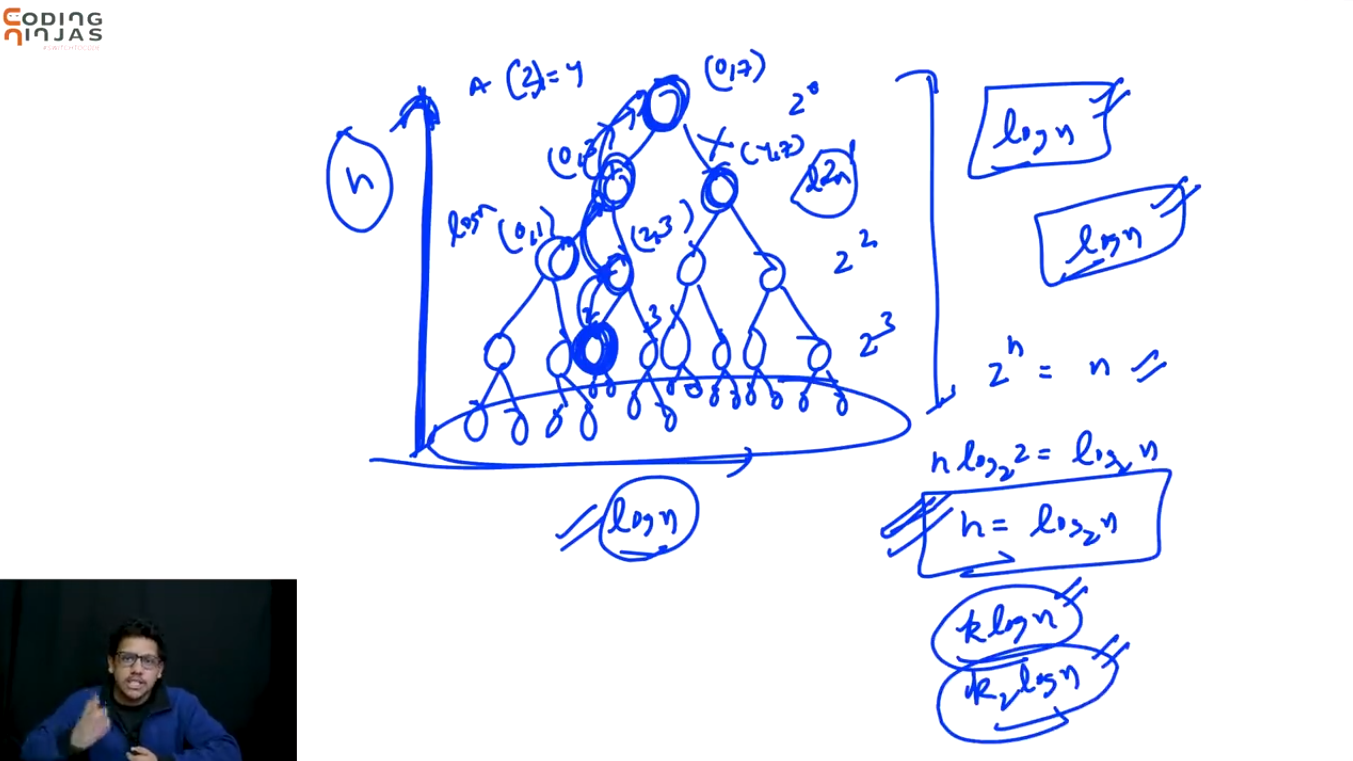 CODING
NINJAS
#SWITCHTOCODE
A (2) = 4
(0,7)
2⁰
(0,3)
(4,7)
h
log n
(0,1)
(2,3)
2²
2
3
2³
log n
log n
log n
2ʰ = n
h log₂ 2 = log₂ n
h = log₂ n
k log n
k₂ log n